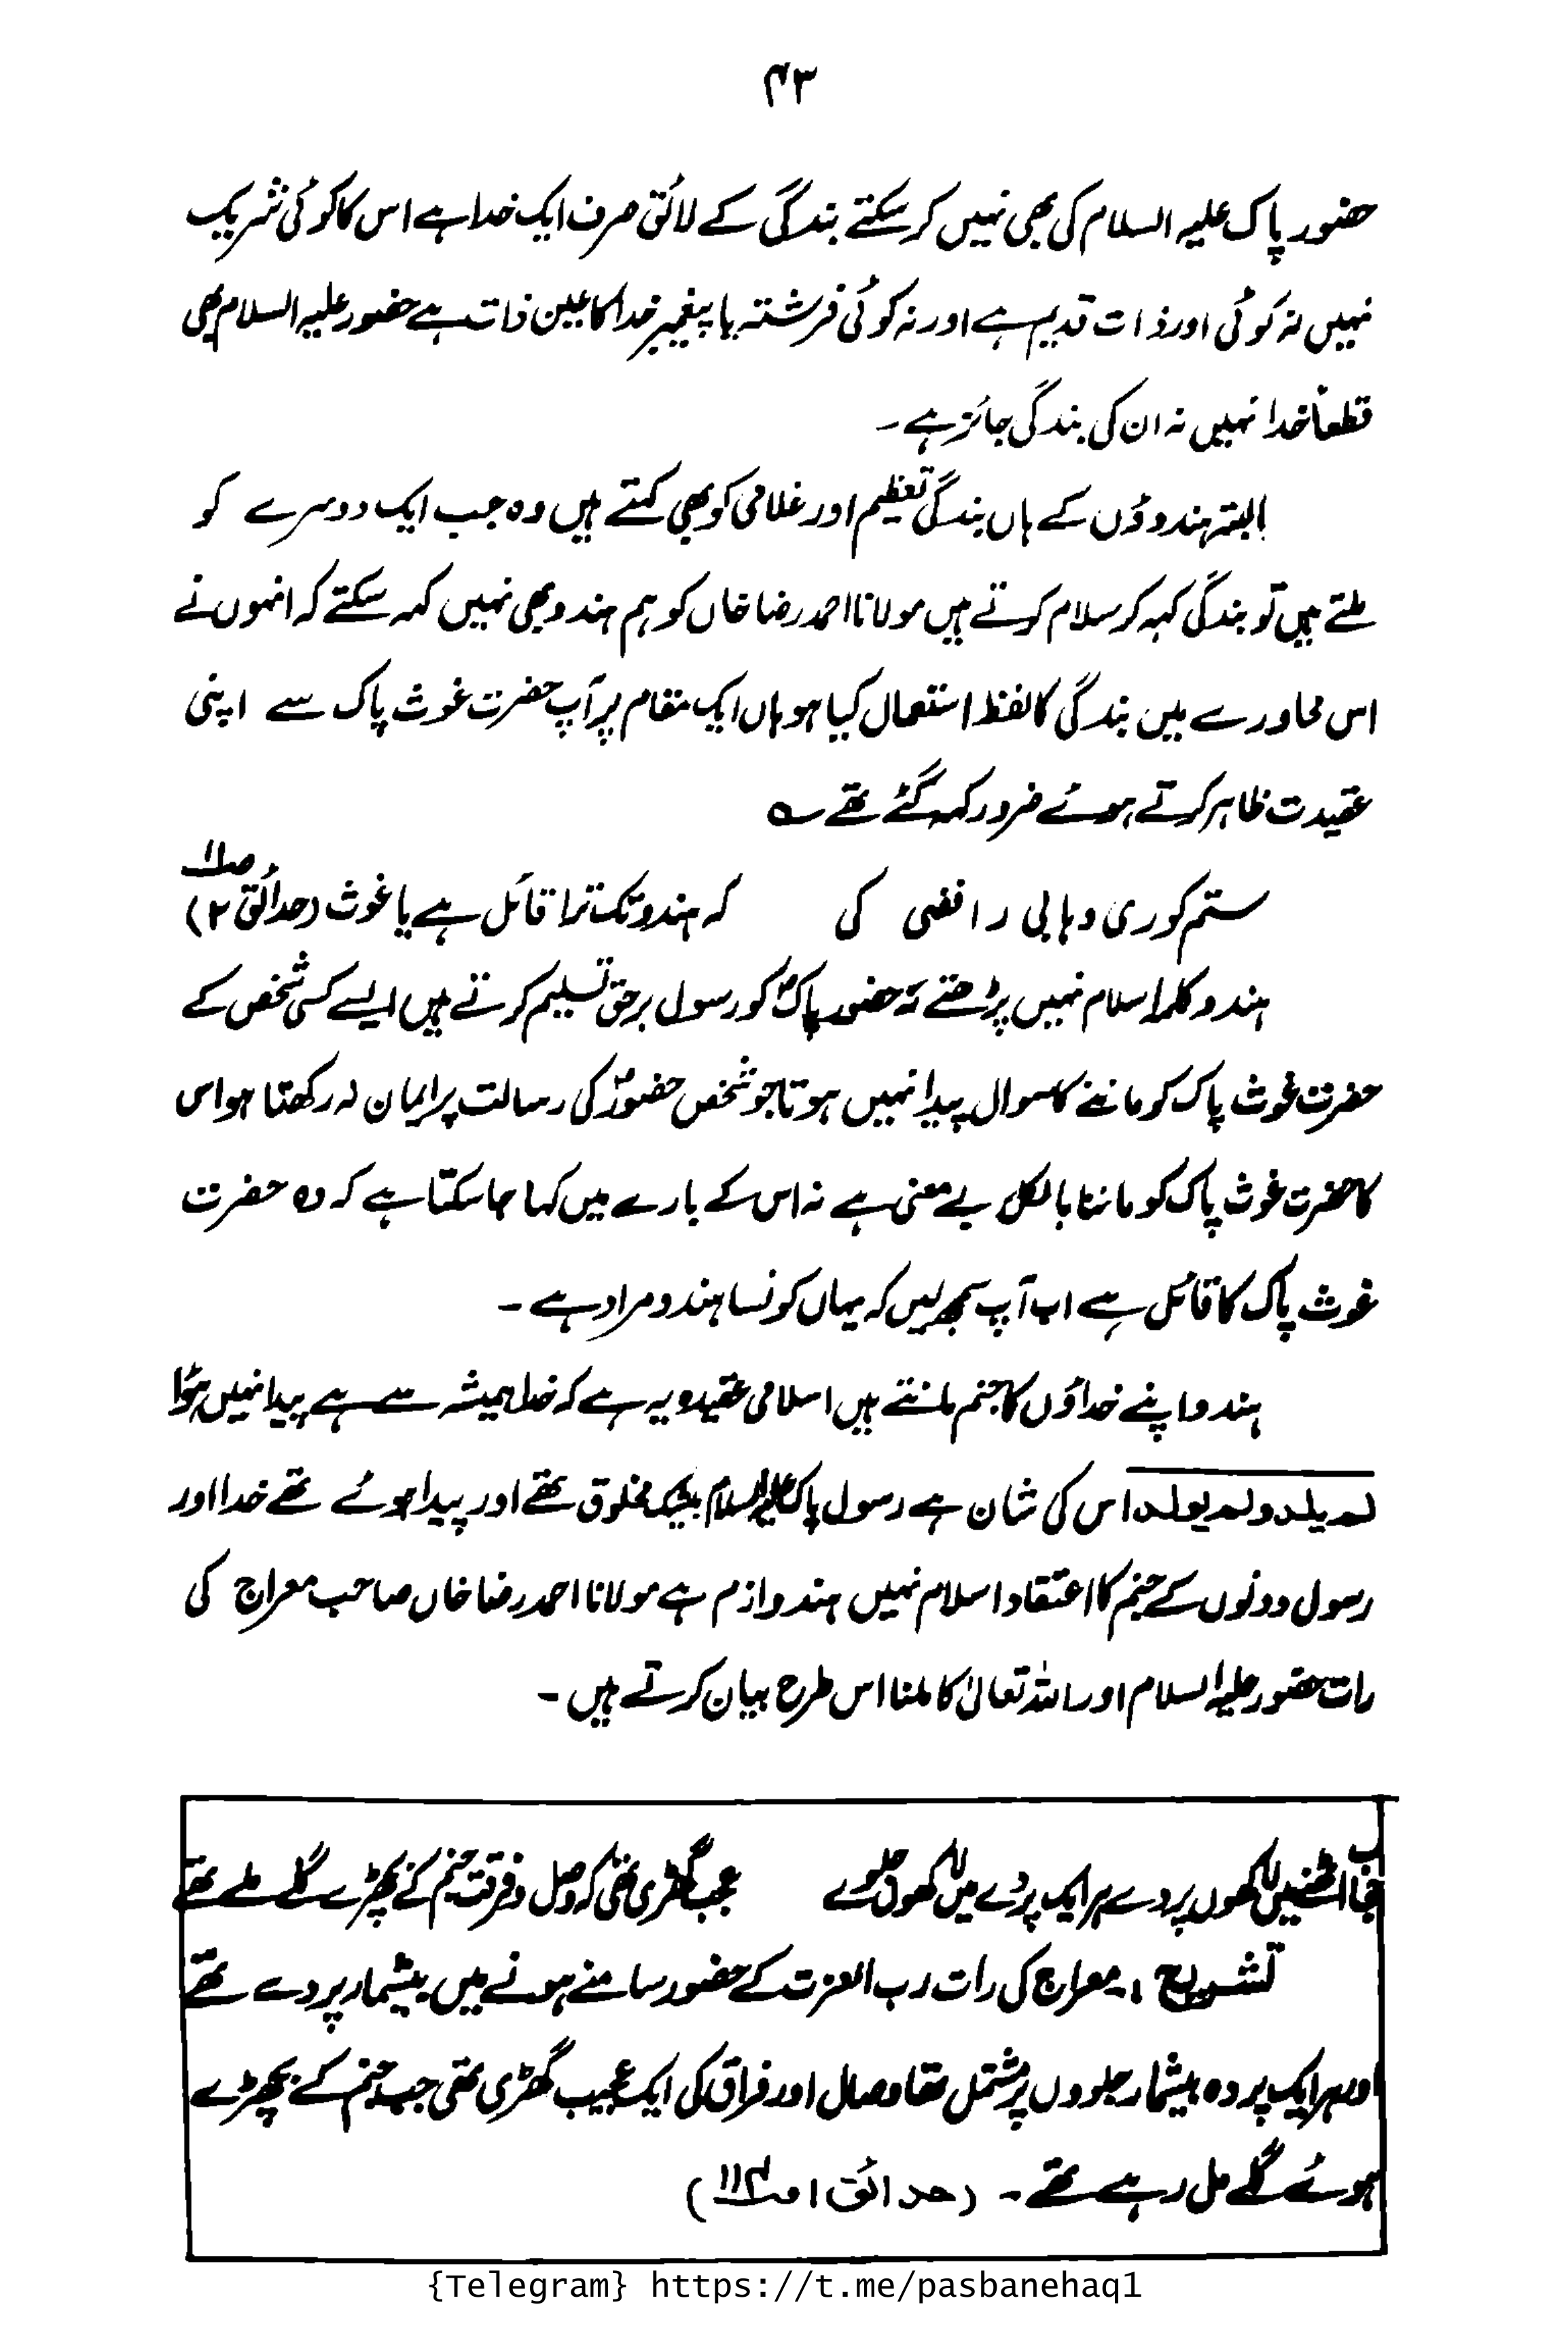 ۴۳
حضور پاک علیہ السلام کی بھی نہیں کر سکتے بندگی کے لائق صرف ایک خدا ہے اس کا کوئی شریک
نہیں نہ کوئی اور ذات قدیم ہے اور نہ کوئی فرشتہ یا پیغمبر خدا کا عین ذات ہے حضور علیہ السلام بھی
قطعاً خدا نہیں نہ ان کی بندگی جائز ہے۔
البتہ ہندوؤں کے ہاں بندگی تعظیم اور غلامی کو بھی کہتے ہیں وہ جب ایک دوسرے کو
ملتے ہیں تو بندگی کہہ کر سلام کرتے ہیں مولانا احمد رضا خاں کو ہم ہندو بھی نہیں کہہ سکتے کہ انہوں نے
اس محاورے میں بندگی کا لفظ استعمال کیا ہو ہاں ایک مقام پر آپ حضرت غوث پاک سے اپنی
عقیدت ظاہر کرتے ہوئے ضرور کہہ گئے تھے ؎
ستم کوری وہابی رافضی کی کہ ہندو تک ترا قائل ہے یا غوث (حدائق ۲ ص۱۱)
ہندو کلمہ اسلام نہیں پڑھتے نہ حضور پاکؐ کو رسول برحق تسلیم کرتے ہیں ایسے کسی شخص کے
حضرت غوث پاک کو ماننے کا سوال پیدا نہیں ہوتا جو شخص حضورؐ کی رسالت پر ایمان نہ رکھتا ہو اس
کا حضرت غوث پاک کو ماننا بالکل بے معنی ہے نہ اس کے بارے میں کہا جا سکتا ہے کہ وہ حضرت
غوث پاک کا قائل ہے اب آپ سمجھ لیں کہ یہاں کونسا ہندو مراد ہے۔
ہندو اپنے خداؤں کا جنم مانتے ہیں اسلامی عقیدہ یہ ہے کہ خدا ہمیشہ سے ہے پیدا نہیں ہؤا
لم یلد ولم یولد اس کی شان ہے رسول پاک علیہ السلام بیشک مخلوق تھے اور پیدا ہوئے تھے خدا اور
رسول دونوں کے جنم کا اعتقاد اسلام نہیں ہندوازم ہے مولانا احمد رضا خاں صاحب معراج کی
رات حضور علیہ السلام اور اللہ تعالیٰ کا ملنا اس طرح بیان کرتے ہیں۔
حجاب اٹھنے میں لاکھوں پردے ہر ایک پردے میں لاکھوں جلوے عجب گھڑی تھی کہ وصل و فرقت جنم کے بچھڑے گلے ملے تھے
تشریح :۔ معراج کی رات رب العزت کے حضور سامنے ہونے میں بیشمار پردے تھے
اور ہر ایک پردہ بیشمار جلووں پر مشتمل تھا وصال اور فراق کی ایک عجیب گھڑی تھی جب جنم کے بچھڑے
ہوئے گلے مل رہے تھے۔ (حدائق ۱ ص۱۱۴)
{Telegram} https://t.me/pasbanehaq1